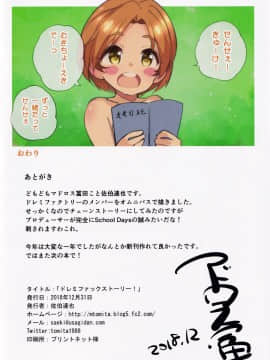 せんせぇー
きゅーけー
おきちょーえき
でーっ
ずっと
一緒だって
せんせぇ
おわり
あとがき
どもどもマドロス富田こと佐伯達也です。
ドレミファクトリーのメンバーをオムニバスで描きました。
せっかくなのでチェーンストーリーにしてみたのですが
プロデューサーが完全にSchool Daysの誠みたいだな!
刺されますねこれ。
今年は大変な一年でしたがなんとか新刊作れて良かったです。
ではまた次の本で!
タイトル:「ドレミファックストーリー!」
発行日:2018年12月31日
発行者:佐伯達也
ホームページ:http://mtomita.blog5.fc2.com/
メール:saeki@usagidan.com
Twitter:tomita1988
印刷所:プリントネット様
2018.12